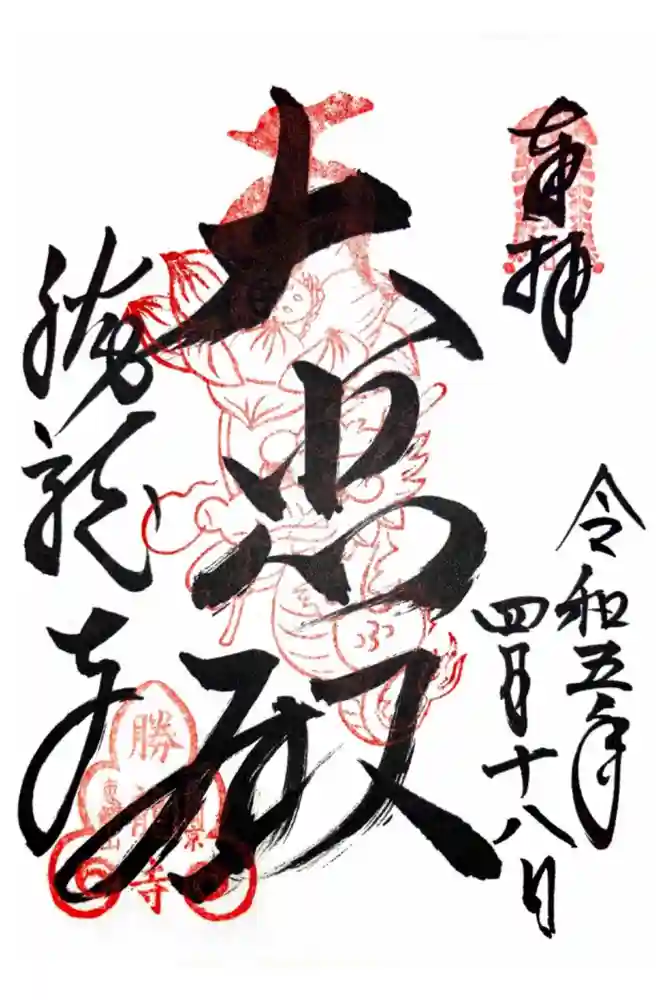 奉拝
令和五年
四月十八日
大悲殿
勝龍寺
勝龍寺